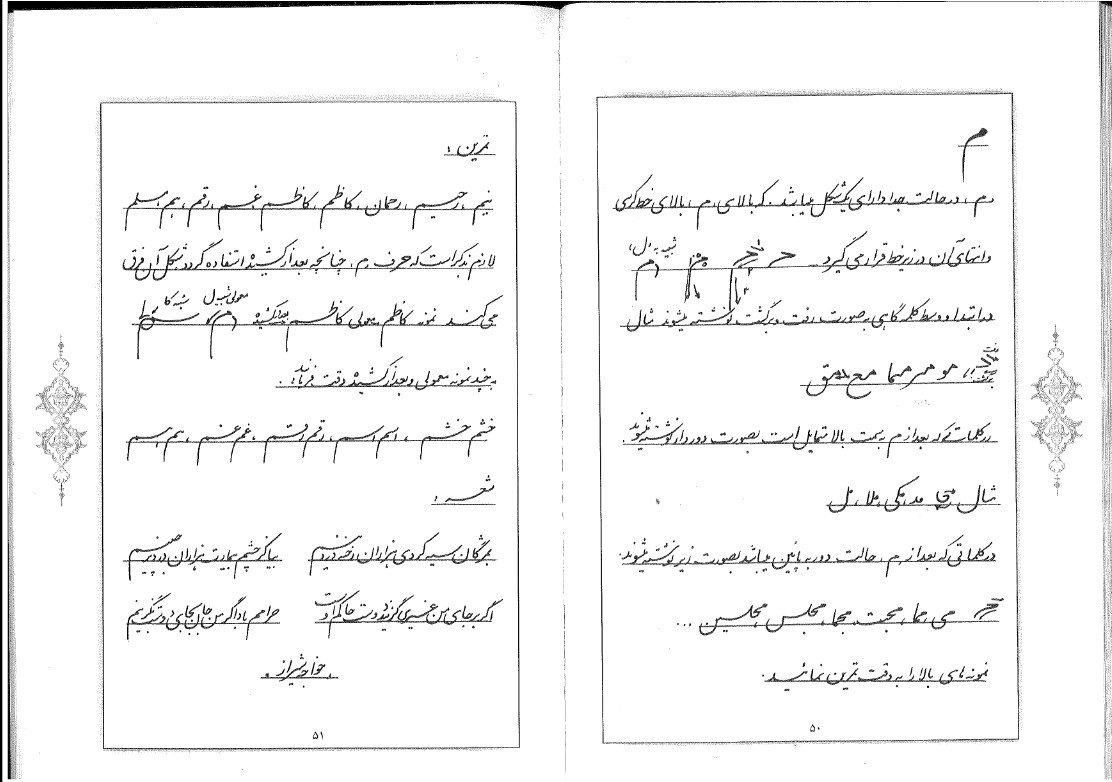 م
م، در حالت جدا دارای یک شکل میباشد. که بالای م، بالای خط کرسی
و انتهای آن در زیر خط قرار می گیرد. شبیه به ل،
در ابتدا و وسط کلمه گاهی به صورت رفت و برگشت نوشته میشوند مثال
مو ممر مما مح مق
در کلماتی که بعد از م به سمت بالا متمایل است بصورت دور دار نوشته میشوند.
مثال مد، مکی، ملا، مل
در کلماتی که بعد از م، حالت دور به پائین میباشد بصورت زیر نوشته میشوند.
می، مما، محبت، مجلس، مجلسین ...
نمونه های بالا را به دقت تمرین نمائید.
۵۰
تمرین:
نیم، رحیم، رحمان، کاظم، کاظم، غم، رقم، هم، مسلم
لازم بذکر است که حرف م، چنانچه بعد از کشیده استفاده گردد شکل آن فرق
می کند نمونه کاظم معمولی کاظم بعد از کشیده معمولی شبیه ل
به چند نمونه معمولی و بعد از کشیده دقت فرمائید.
خشم خشم، اسم اسم، رقم رقم، غم غم، هم هم
شعر:
بمژگان سیه کردی هزاران رخنه در دینم
بیا کز چشم بیمارت هزاران درد برچینم
اگر بر جای من غیری گزیند دوست حاکم اوست
حرامم باد اگر من جان بجای دوست بگزینم
خواجه شیراز
۵۱